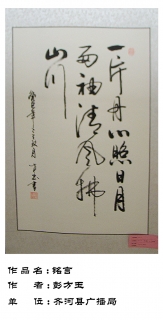 一片丹心照日月
两袖清风拂
山川
作品名：铭言
作者：彭方玉
单位：齐河县广播局